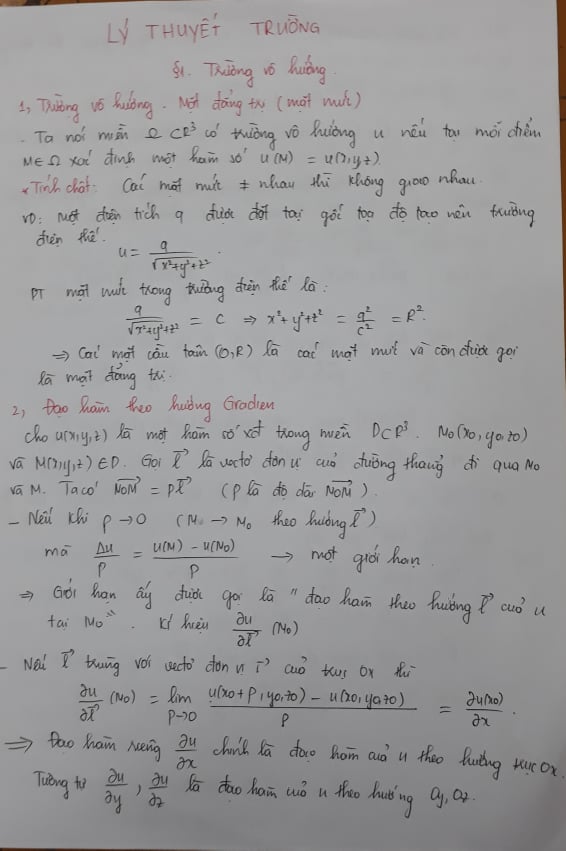 LÝ THUYẾT TRƯỜNG
§1. Trường vô hướng.
1, Trường vô hướng. Mặt đẳng trị (mặt mức)
- Ta nói miền Ω ⊂ R³ có trường vô hướng u nếu tại mỗi điểm
M ∈ Ω xác định một hàm số u(M) = u(x,y,z)
* Tính chất: Các mặt mức ≠ nhau thì không giao nhau.
VD: Một điện tích q được đặt tại gốc toạ độ tạo nên trường
điện thế.
u = q / √(x²+y²+z²).
PT mặt mức trong trường điện thế là:
q / √(x²+y²+z²) = C ⇒ x²+y²+z² = q²/C² = R².
⇒ Các mặt cầu tâm (O,R) là các mặt mức và còn được gọi
là mặt đẳng trị.
2, Đạo hàm theo hướng Gradien
Cho u(x,y,z) là một hàm số xđ trong miền D ⊂ R³. M0(x0,y0,z0)
và M(x,y,z) ∈ D. Gọi l⃗ là vectơ đơn vị của đường thẳng đi qua M0
và M. Ta có M0M⃗ = ρl⃗ (ρ là độ dài M0M⃗).
- Nếu khi ρ → 0 (M → M0 theo hướng l⃗)
mà Δu/ρ = (u(M) - u(M0))/ρ → một giới hạn.
⇒ Giới hạn ấy được gọi là "đạo hàm theo hướng l⃗ của u
tại M0". Kí hiệu ∂u/∂l⃗ (M0)
- Nếu l⃗ trùng với vectơ đơn vị i⃗ của trục Ox thì
∂u/∂l⃗ (M0) = lim ρ→0 (u(x0+ρ,y0,z0) - u(x0,y0,z0))/ρ = ∂u(x0)/∂x.
⇒ Đạo hàm riêng ∂u/∂x chính là đạo hàm của u theo hướng trục Ox.
Tương tự ∂u/∂y, ∂u/∂z là đạo hàm của u theo hướng Oy, Oz.